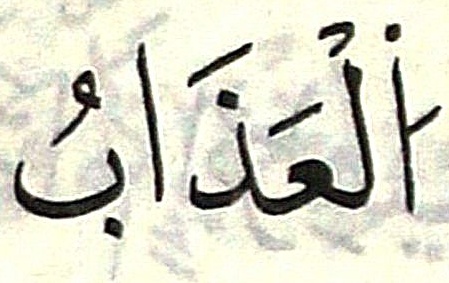 اُ۬لْعَذَابُ